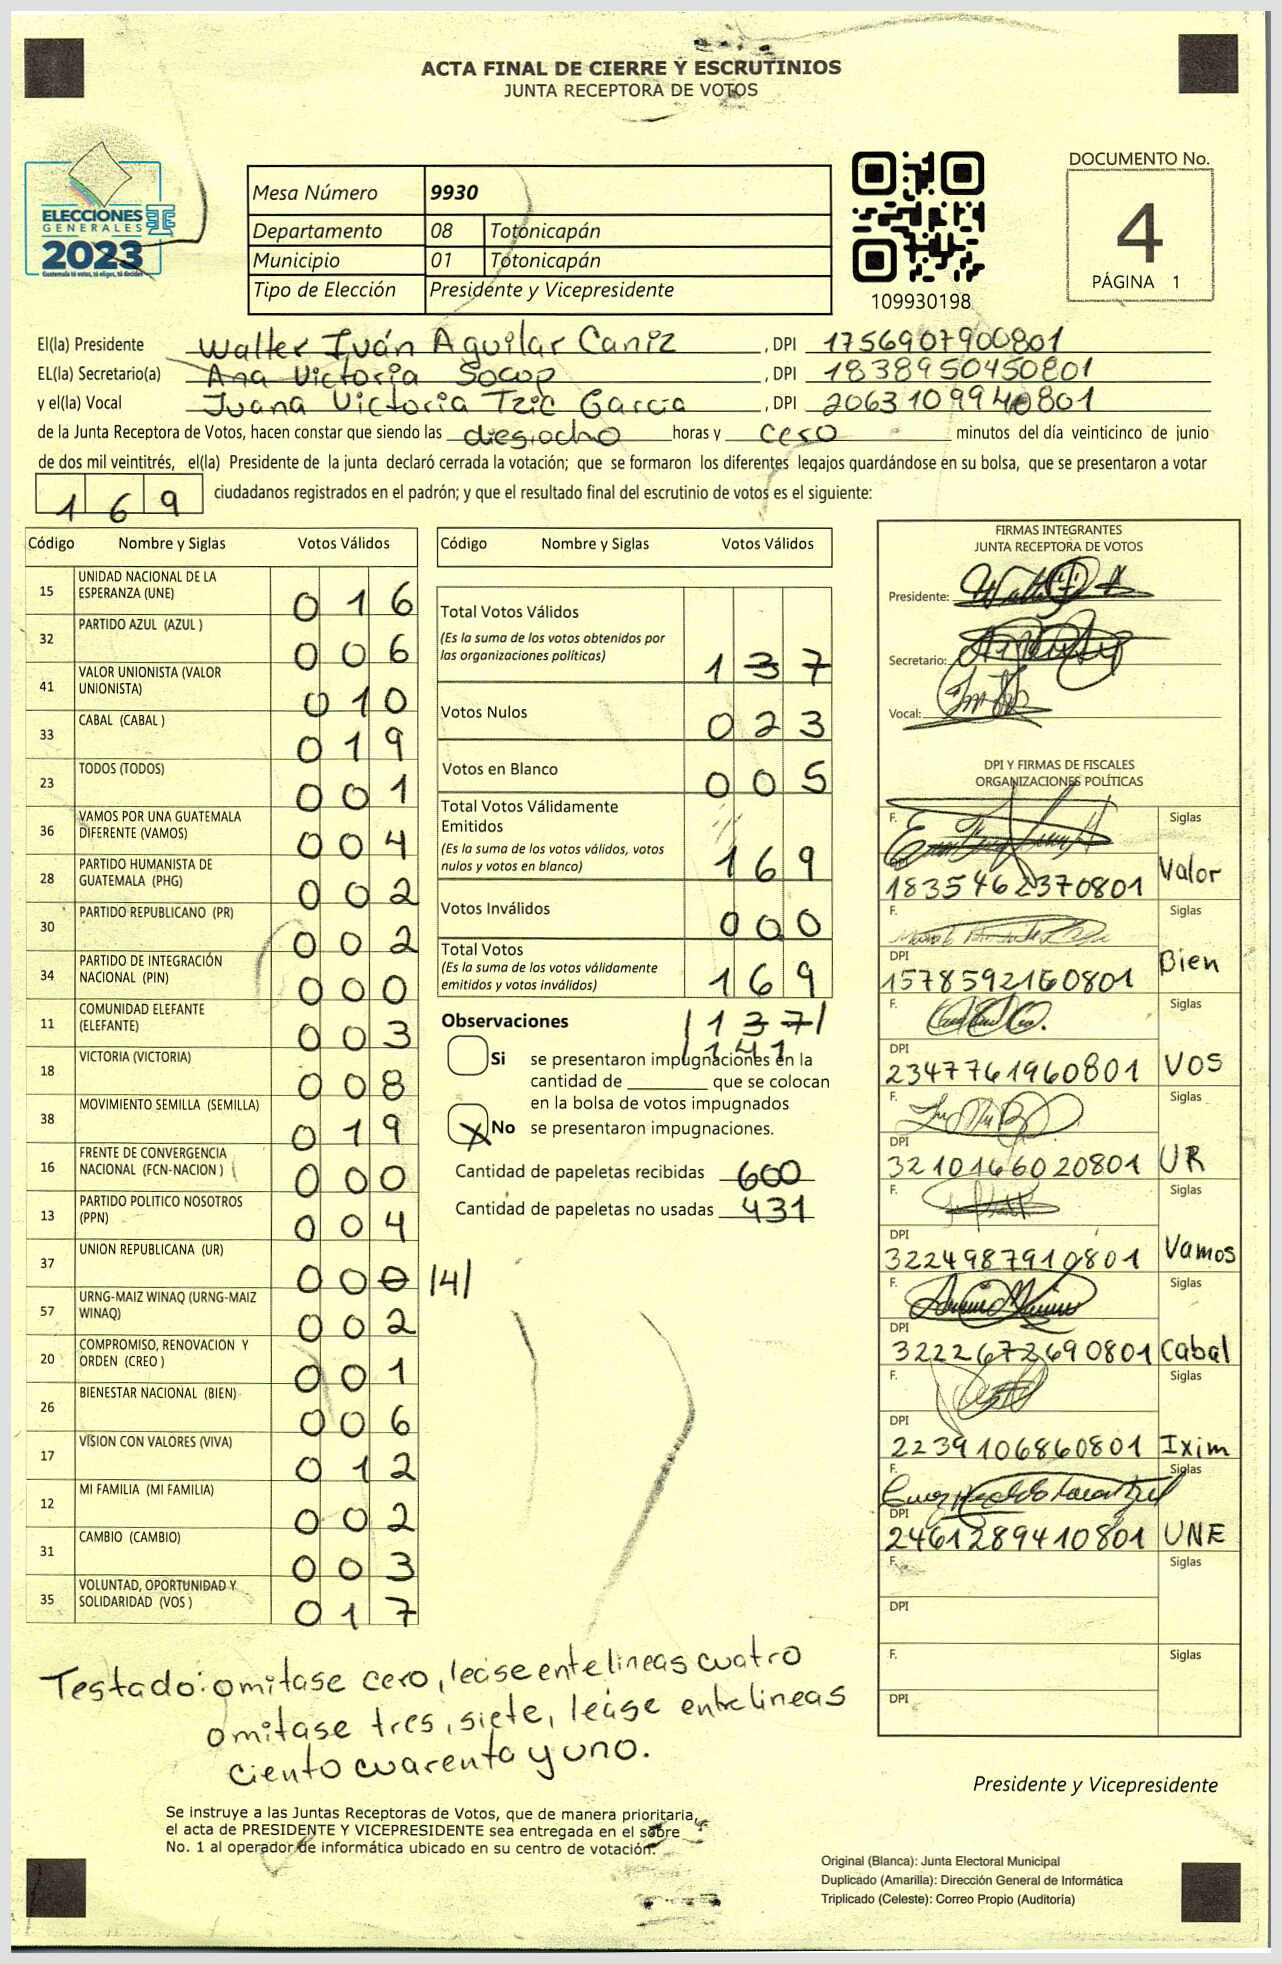 ACTA FINAL DE CIERRE Y ESCRUTINIOS
JUNTA RECEPTORA DE VOTOS
ELECCIONES
GENERALES
2023
Guatemala tú votas, tú eliges, tú decides
Mesa Número 9930
Departamento 08 Totonicapán
Municipio 01 Totonicapán
Tipo de Elección Presidente y Vicepresidente
109930198
DOCUMENTO No.
4
PÁGINA 1
El(la) Presidente Walter Iván Aguilar Caniz , DPI 1756907900801
EL(la) Secretario(a) Ana Victoria Socop , DPI 1838950450801
y el(la) Vocal Juana Victoria Tzic García , DPI 2063109940801
de la Junta Receptora de Votos, hacen constar que siendo las diesiocho horas y cero minutos del día veinticinco de junio
de dos mil veintitrés, el(la) Presidente de la junta declaró cerrada la votación; que se formaron los diferentes legajos guardándose en su bolsa, que se presentaron a votar
169 ciudadanos registrados en el padrón; y que el resultado final del escrutinio de votos es el siguiente:
Código Nombre y Siglas Votos Válidos
15 UNIDAD NACIONAL DE LA ESPERANZA (UNE) 016
32 PARTIDO AZUL (AZUL ) 006
41 VALOR UNIONISTA (VALOR UNIONISTA) 010
33 CABAL (CABAL ) 019
23 TODOS (TODOS) 001
36 VAMOS POR UNA GUATEMALA DIFERENTE (VAMOS) 004
28 PARTIDO HUMANISTA DE GUATEMALA (PHG) 002
30 PARTIDO REPUBLICANO (PR) 002
34 PARTIDO DE INTEGRACIÓN NACIONAL (PIN) 000
11 COMUNIDAD ELEFANTE (ELEFANTE) 003
18 VICTORIA (VICTORIA) 008
38 MOVIMIENTO SEMILLA (SEMILLA) 019
16 FRENTE DE CONVERGENCIA NACIONAL (FCN-NACION ) 000
13 PARTIDO POLITICO NOSOTROS (PPN) 004
37 UNION REPUBLICANA (UR) 000 /4/
57 URNG-MAIZ WINAQ (URNG-MAIZ WINAQ) 002
20 COMPROMISO, RENOVACION Y ORDEN (CREO ) 001
26 BIENESTAR NACIONAL (BIEN) 006
17 VISION CON VALORES (VIVA) 012
12 MI FAMILIA (MI FAMILIA) 002
31 CAMBIO (CAMBIO) 003
35 VOLUNTAD, OPORTUNIDAD Y SOLIDARIDAD (VOS ) 017
Código Nombre y Siglas Votos Válidos
Total Votos Válidos
(Es la suma de los votos obtenidos por
las organizaciones políticas) 137
Votos Nulos 023
Votos en Blanco 005
Total Votos Válidamente
Emitidos
(Es la suma de los votos válidos, votos
nulos y votos en blanco) 169
Votos Inválidos 000
Total Votos
(Es la suma de los votos válidamente
emitidos y votos inválidos) 169
Observaciones /137/
/141
Si se presentaron impugnaciones en la
cantidad de ________ que se colocan
en la bolsa de votos impugnados
X No se presentaron impugnaciones.
Cantidad de papeletas recibidas 600
Cantidad de papeletas no usadas 431
FIRMAS INTEGRANTES
JUNTA RECEPTORA DE VOTOS
Presidente:
Secretario:
Vocal:
DPI Y FIRMAS DE FISCALES
ORGANIZACIONES POLÍTICAS
F. Siglas
DPI 1835462370801 Valor
F. Siglas
DPI 1578592160801 Bien
F. Siglas
DPI 2347761960801 VOS
F. Siglas
DPI 3210166020801 UR
F. Siglas
DPI 3224987910801 Vamos
F. Siglas
DPI 3222672690801 Cabal
F. Siglas
DPI 2239106860801 Ixim
F. Siglas
DPI 2461289410801 UNE
F. Siglas
DPI
F. Siglas
DPI
Testado: omitase cero, lease entelineas cuatro
omitase tres, siete, leáse entrelineas
ciento cuarenta y uno.
Presidente y Vicepresidente
Se instruye a las Juntas Receptoras de Votos, que de manera prioritaria,
el acta de PRESIDENTE Y VICEPRESIDENTE sea entregada en el sobre
No. 1 al operador de informática ubicado en su centro de votación.
Original (Blanca): Junta Electoral Municipal
Duplicado (Amarilla): Dirección General de Informática
Triplicado (Celeste): Correo Propio (Auditoría)